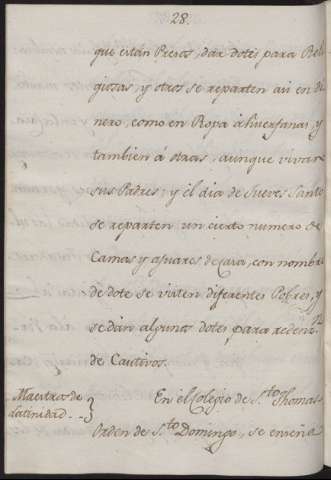 28.
que están Presos, dar dotes para Reli
giosas, y otros se reparten asi en di
nero, como en Ropa à Huerfanas, y
tambien á otras, aunque vivan
sus Padres; y el dia de Jueves Santo
se reparten un cierto numero de
Camas y ajuares de casa, con nombre
de dote se visten diferentes Pobres, y
se dán algunas dotes para redenⁿ.
de Cautivos.
Maestros de
latinidad. - -
En el Colegio de S.ᵗᵒ Thomas
Orden de S.ᵗᵒ Domingo, se enseña